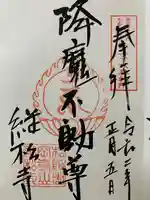 奉拝
令和二年
正月五日
降魔不動尊
継松寺